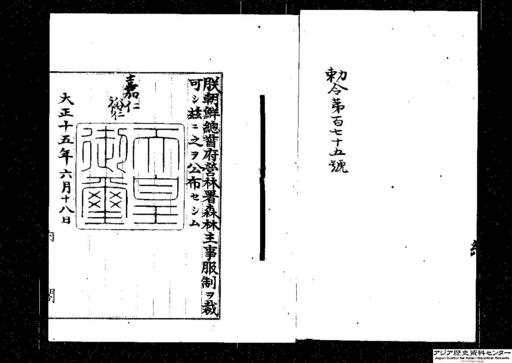 勅令第百七十五號
朕朝鮮總督府營林署森林主事服制ヲ裁
可シ茲ニ之ヲ公布セシム
嘉仁
裕仁
天皇
御璽
大正十五年六月十八日
内閣
アジア歴史資料センター
Japan Center for Asian Historical Records